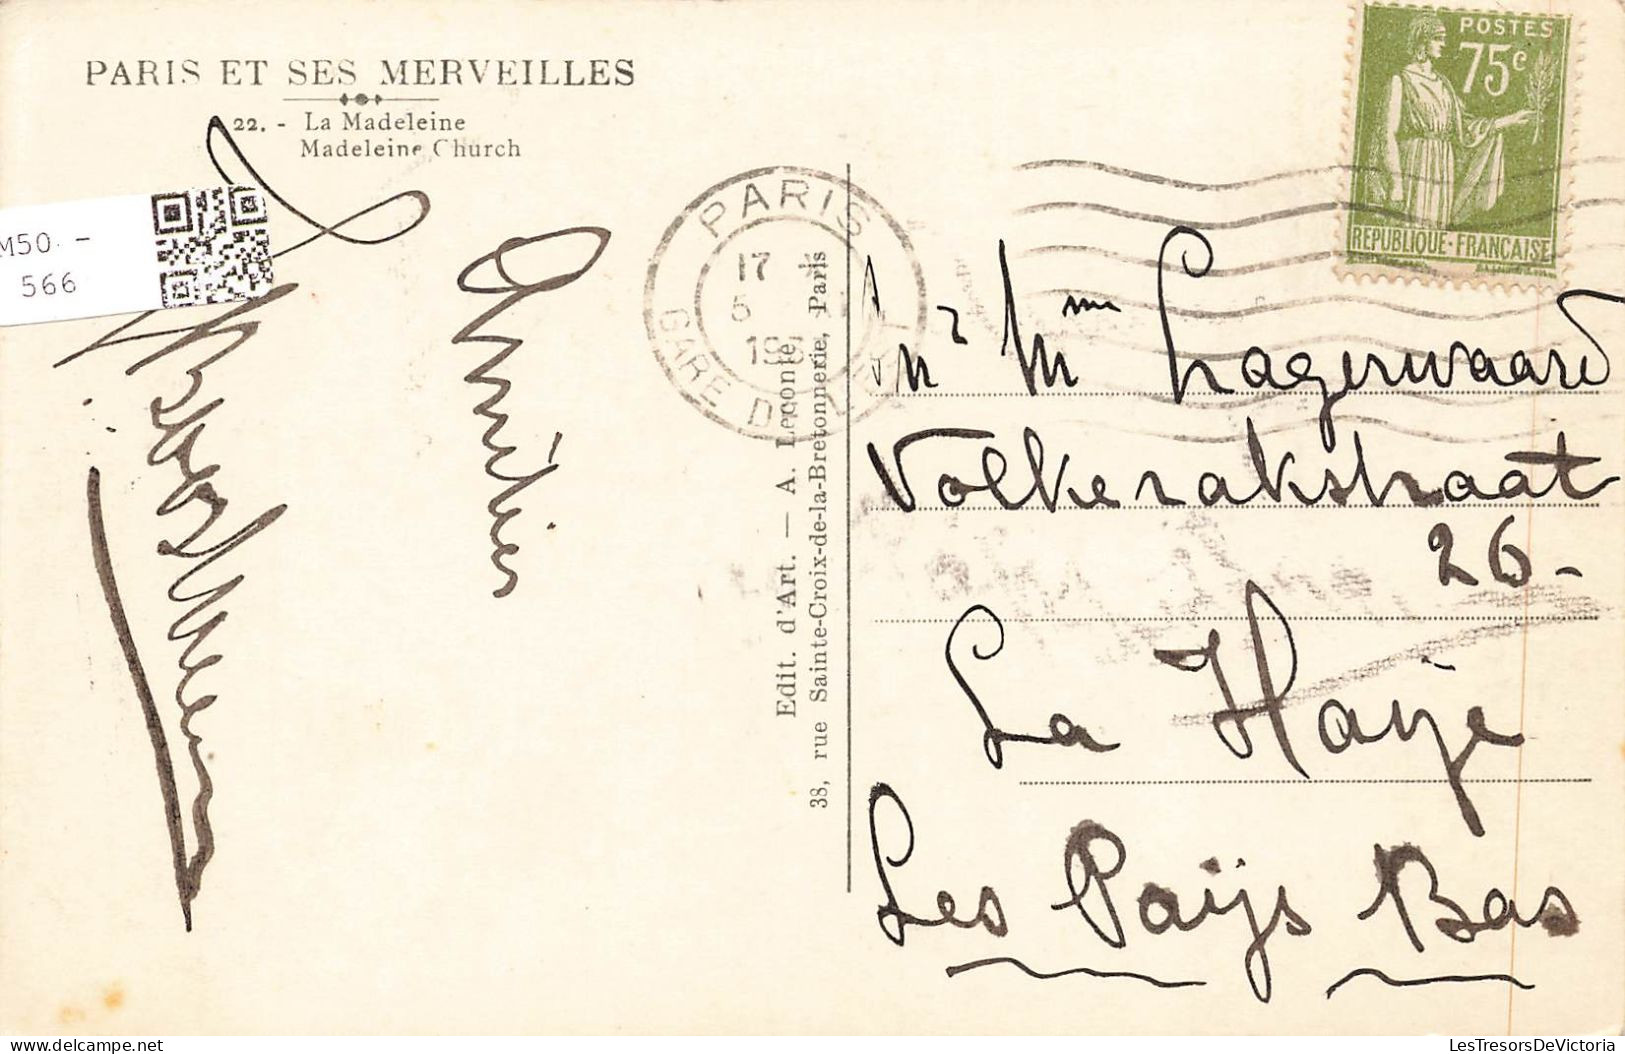 PARIS ET SES MERVEILLES
22. - La Madeleine
Madeleine Church
M50 -
566
Amitiés
Edit. d'Art. — A. Leconte,
38, rue Sainte-Croix-de-la-Bretonnerie, Paris
PARIS
17
5
GARE D
POSTES
75c
REPUBLIQUE·FRANÇAISE
Mr Mme Lagerwaard
Volkerakstraat
26-
La Haye
Les Pays Bas
LesTresorsDeVictoria
delcampe.net